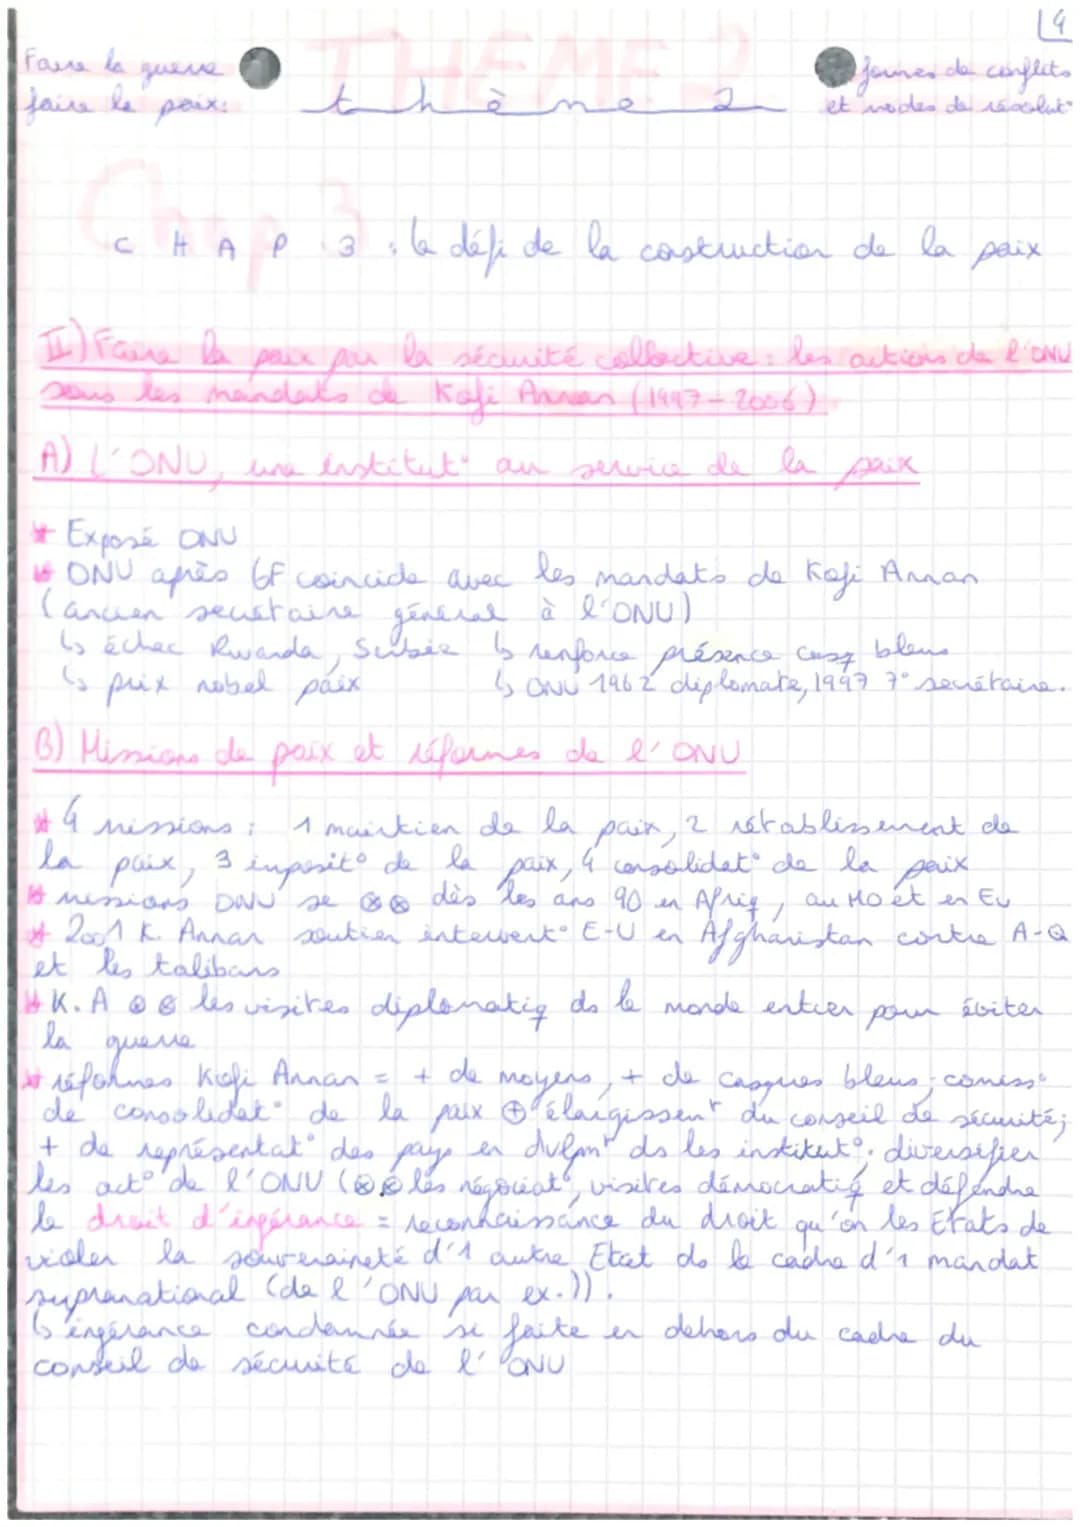 4
Faire la guerre
faire la paix:
THEME 2
thème 2
formes de conflits
et modes de résolut°
Chap 3
CHAP 3 : le défi de la construction de la paix
II) Faire la paix par la sécurité collective : les actions de l'ONU
sous les mandats de Kofi Annan (1997-2006)
A) L'ONU, une institut° au service de la paix
* Exposé ONU
* ONU après GF coincide avec les mandats de Kofi Annan
(ancien secrétaire général à l'ONU)
↳ échec Rwanda, Serbie ↳ renforce présence casq bleus
↳ prix nobel paix ↳ ONU 1962 diplomate, 1997 7° secrétaire.
B) Missions de paix et réformes de l'ONU
* 4 missions : 1 maintien de la paix, 2 rétablissement de
la paix, 3 imposit° de la paix, 4 consolidat° de la paix
* missions ONU se ⊗⊗ dès les ans 90 en Afriq, au MO et en Eu
* 2001 K. Annan soutien intervent° E-U en Afghanistan contre A-Q
et les talibans
* K. A ⊗⊗ les visites diplomatiq ds le monde entier pour éviter
la guerre
* réformes Kofi Annan = + de moyens, + de casques bleus, comiss°
de consolidat° de la paix ⊕ élargissent du conseil de sécurité;
+ de représentat° des pays en dvlpmt ds les institut°; diversifier
les act° de l'ONU (⊗⊗ les négociat°, visites démocratiq et défendre
le droit d'ingérance = reconnaissance du droit qu'on les Etats de
violer la souveraineté d'1 autre Etat ds le cadre d'1 mandat
supranational (de l'ONU par ex.)).
↳ ingérance condamnée si faite en dehors du cadre du
conseil de sécurité de l'ONU